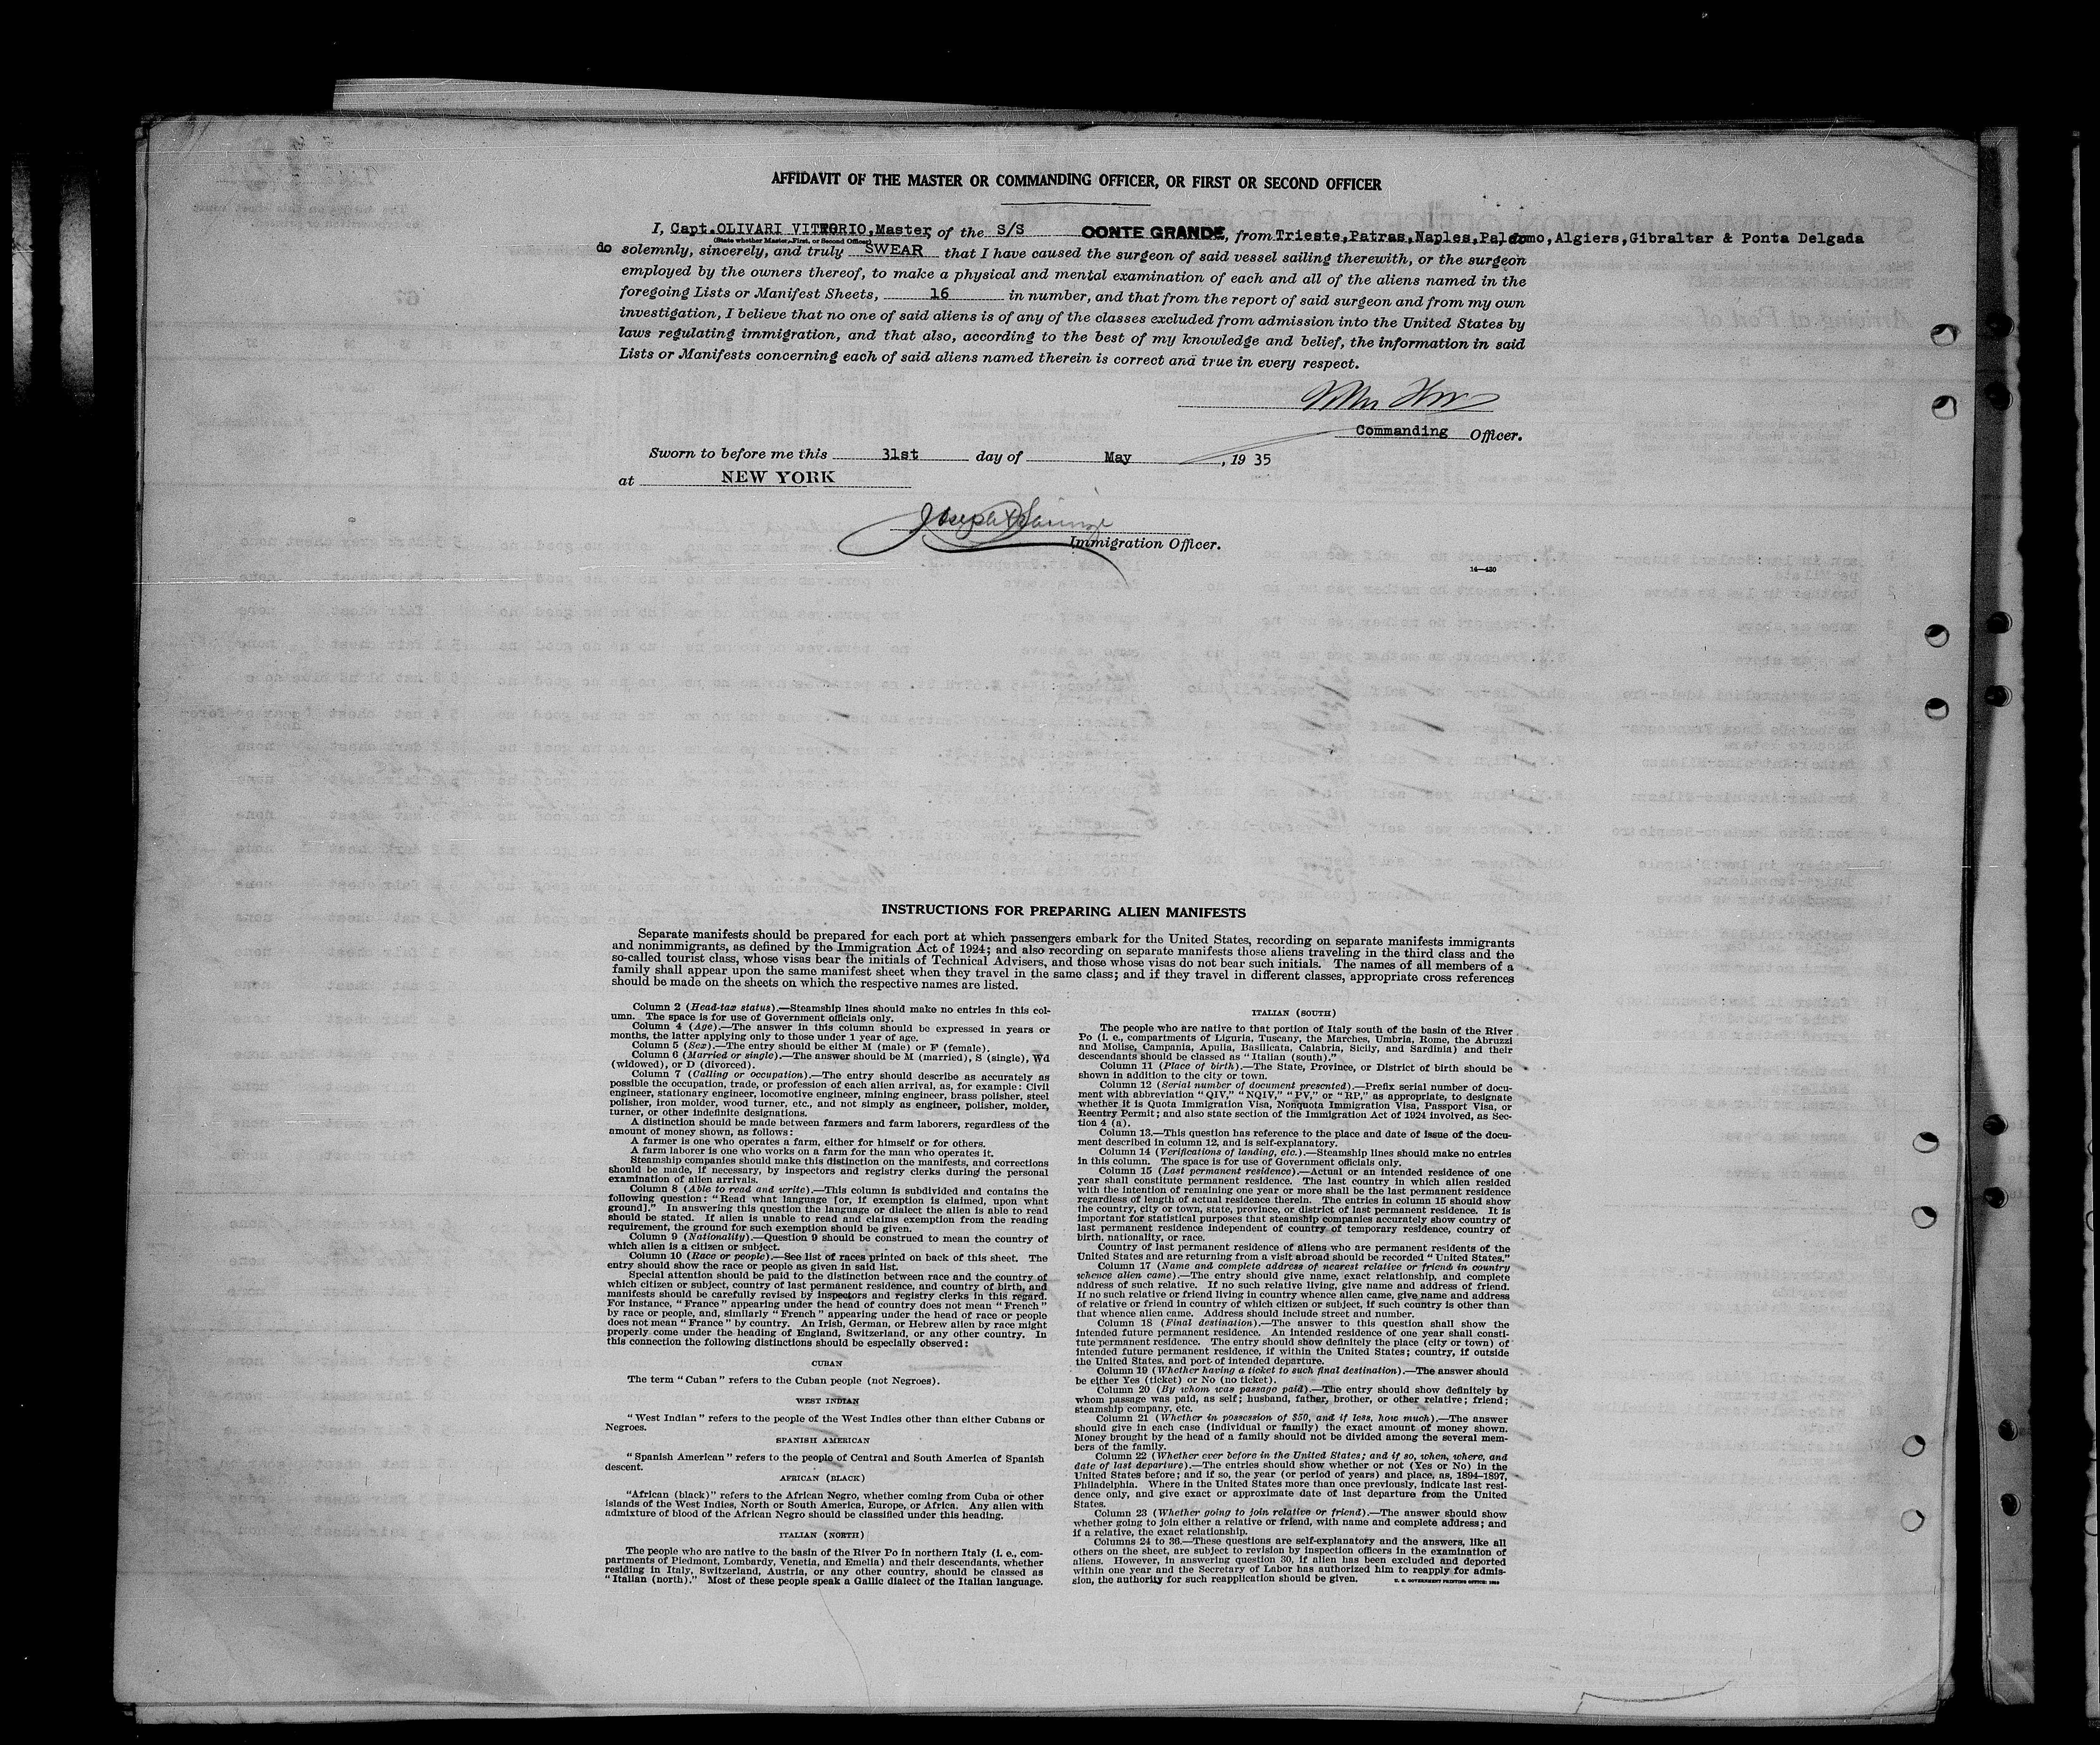 AFFIDAVIT OF THE MASTER OR COMMANDING OFFICER, OR FIRST OR SECOND OFFICER
I, Capt.OLIVARI VITTORIO,Master, of the S/S CONTE GRANDE, from Trieste,Patras,Naples,Palermo,Algiers,Gibraltar & Ponta Delgada
(State whether Master, First, or Second Officer)
do solemnly, sincerely, and truly SWEAR that I have caused the surgeon of said vessel sailing therewith, or the surgeon
employed by the owners thereof, to make a physical and mental examination of each and all of the aliens named in the
foregoing Lists or Manifest Sheets, 16 in number, and that from the report of said surgeon and from my own
investigation, I believe that no one of said aliens is of any of the classes excluded from admission into the United States by
laws regulating immigration, and that also, according to the best of my knowledge and belief, the information in said
Lists or Manifests concerning each of said aliens named therein is correct and true in every respect.
Commanding Officer.
Sworn to before me this 31st day of May, 19 35
at NEW YORK
Immigration Officer.
14—430
INSTRUCTIONS FOR PREPARING ALIEN MANIFESTS
Separate manifests should be prepared for each port at which passengers embark for the United States, recording on separate manifests immigrants
and nonimmigrants, as defined by the Immigration Act of 1924; and also recording on separate manifests those aliens traveling in the third class and the
so-called tourist class, whose visas bear the initials of Technical Advisers, and those whose visas do not bear such initials. The names of all members of a
family shall appear upon the same manifest sheet when they travel in the same class; and if they travel in different classes, appropriate cross references
should be made on the sheets on which the respective names are listed.
Column 2 (Head-tax status).—Steamship lines should make no entries in this col-
umn. The space is for use of Government officials only.
Column 4 (Age).—The answer in this column should be expressed in years or
months, the latter applying only to those under 1 year of age.
Column 5 (Sex).—The entry should be either M (male) or F (female).
Column 6 (Married or single).—The answer should be M (married), S (single), Wd
(widowed), or D (divorced).
Column 7 (Calling or occupation).—The entry should describe as accurately as
possible the occupation, trade, or profession of each alien arrival, as, for example: Civil
engineer, stationary engineer, locomotive engineer, mining engineer, brass polisher, steel
polisher, iron molder, wood turner, etc., and not simply as engineer, polisher, molder,
turner, or other indefinite designations.
A distinction should be made between farmers and farm laborers, regardless of the
amount of money shown, as follows:
A farmer is one who operates a farm, either for himself or for others.
A farm laborer is one who works on a farm for the man who operates it.
Steamship companies should make this distinction on the manifests, and corrections
should be made, if necessary, by inspectors and registry clerks during the personal
examination of alien arrivals.
Column 8 (Able to read and write).—This column is subdivided and contains the
following question: "Read what language [or, if exemption is claimed, upon what
ground]." In answering this question the language or dialect the alien is able to read
should be stated. If alien is unable to read and claims exemption from the reading
requirement, the ground for such exemption should be given.
Column 9 (Nationality).—Question 9 should be construed to mean the country of
which alien is a citizen or subject.
Column 10 (Race or people).—See list of races printed on back of this sheet. The
entry should show the race or people as given in said list.
Special attention should be paid to the distinction between race and the country of
which citizen or subject, country of last permanent residence, and country of birth, and
manifests should be carefully revised by inspectors and registry clerks in this regard.
For instance, "France" appearing under the head of country does not mean "French"
by race or people, and, similarly "French" appearing under the head of race or people
does not mean "France" by country. An Irish, German, or Hebrew alien by race might
properly come under the heading of England, Switzerland, or any other country. In
this connection the following distinctions should be especially observed:
CUBAN
The term "Cuban" refers to the Cuban people (not Negroes).
WEST INDIAN
"West Indian" refers to the people of the West Indies other than either Cubans or
Negroes.
SPANISH AMERICAN
"Spanish American" refers to the people of Central and South America of Spanish
descent.
AFRICAN (BLACK)
"African (black)" refers to the African Negro, whether coming from Cuba or other
islands of the West Indies, North or South America, Europe, or Africa. Any alien with
admixture of blood of the African Negro should be classified under this heading.
ITALIAN (NORTH)
The people who are native to the basin of the River Po in northern Italy (i. e., com-
partments of Piedmont, Lombardy, Venetia, and Emelia) and their descendants, whether
residing in Italy, Switzerland, Austria, or any other country, should be classed as
"Italian (north)." Most of these people speak a Gallic dialect of the Italian language.
ITALIAN (SOUTH)
The people who are native to that portion of Italy south of the basin of the River
Po (i. e., compartments of Liguria, Tuscany, the Marches, Umbria, Rome, the Abruzzi
and Molise, Campania, Apulia, Basilicata, Calabria, Sicily, and Sardinia) and their
descendants should be classed as "Italian (south)."
Column 11 (Place of birth).—The State, Province, or District of birth should be
shown in addition to the city or town.
Column 12 (Serial number of document presented).—Prefix serial number of docu-
ment with abbreviation "QIV," "NQIV," "PV," or "RP," as appropriate, to designate
whether it is Quota Immigration Visa, Nonquota Immigration Visa, Passport Visa, or
Reentry Permit; and also state section of the Immigration Act of 1924 involved, as Sec-
tion 4 (a).
Column 13.—This question has reference to the place and date of issue of the docu-
ment described in column 12, and is self-explanatory.
Column 14 (Verifications of landing, etc.).—Steamship lines should make no entries
in this column. The space is for use of Government officials only.
Column 15 (Last permanent residence).—Actual or an intended residence of one
year shall constitute permanent residence. The last country in which alien resided
with the intention of remaining one year or more shall be the last permanent residence
regardless of length of actual residence therein. The entries in column 15 should show
the country, city or town, state, province, or district of last permanent residence. It is
important for statistical purposes that steamship companies accurately show country of
last permanent residence independent of country of temporary residence, country of
birth, nationality, or race.
Country of last permanent residence of aliens who are permanent residents of the
United States and are returning from a visit abroad should be recorded "United States."
Column 17 (Name and complete address of nearest relative or friend in country
whence alien came).—The entry should give name, exact relationship, and complete
address of such relative. If no such relative living, give name and address of friend.
If no such relative or friend living in country whence alien came, give name and address
of relative or friend in country of which citizen or subject, if such country is other than
that whence alien came. Address should include street and number.
Column 18 (Final destination).—The answer to this question shall show the
intended future permanent residence. An intended residence of one year shall consti-
tute permanent residence. The entry should show definitely the place (city or town) of
intended future permanent residence, if within the United States; country, if outside
the United States, and port of intended departure.
Column 19 (Whether having a ticket to such final destination).—The answer should
be either Yes (ticket) or No (no ticket).
Column 20 (By whom was passage paid).—The entry should show definitely by
whom passage was paid, as self; husband, father, brother, or other relative; friend;
steamship company, etc.
Column 21 (Whether in possession of $50, and if less, how much).—The answer
should give in each case (individual or family) the exact amount of money shown.
Money brought by the head of a family should not be divided among the several mem-
bers of the family.
Column 22 (Whether ever before in the United States; and if so, when, where, and
date of last departure).—The entries should show whether or not (Yes or No) in the
United States before; and if so, the year (or period of years) and place, as, 1894–1897,
Philadelphia. Where in the United States more than once previously, indicate last resi-
dence only, and give exact or approximate date of last departure from the United
States.
Column 23 (Whether going to join relative or friend).—The answer should show
whether going to join either a relative or friend, with name and complete address; and
if a relative, the exact relationship.
Columns 24 to 36.—These questions are self-explanatory and the answers, like all
others on the sheet, are subject to revision by inspection officers in the examination of
aliens. However, in answering question 30, if alien has been excluded and deported
within one year and the Secretary of Labor has authorized him to reapply for admis-
sion, the authority for such reapplication should be given.
U. S. GOVERNMENT PRINTING OFFICE: